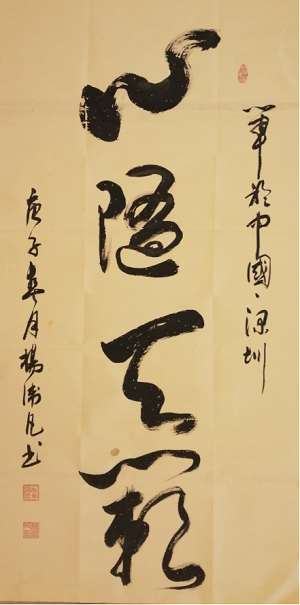 筆於中國深圳
心隨天籟
庚子春月楊凡书